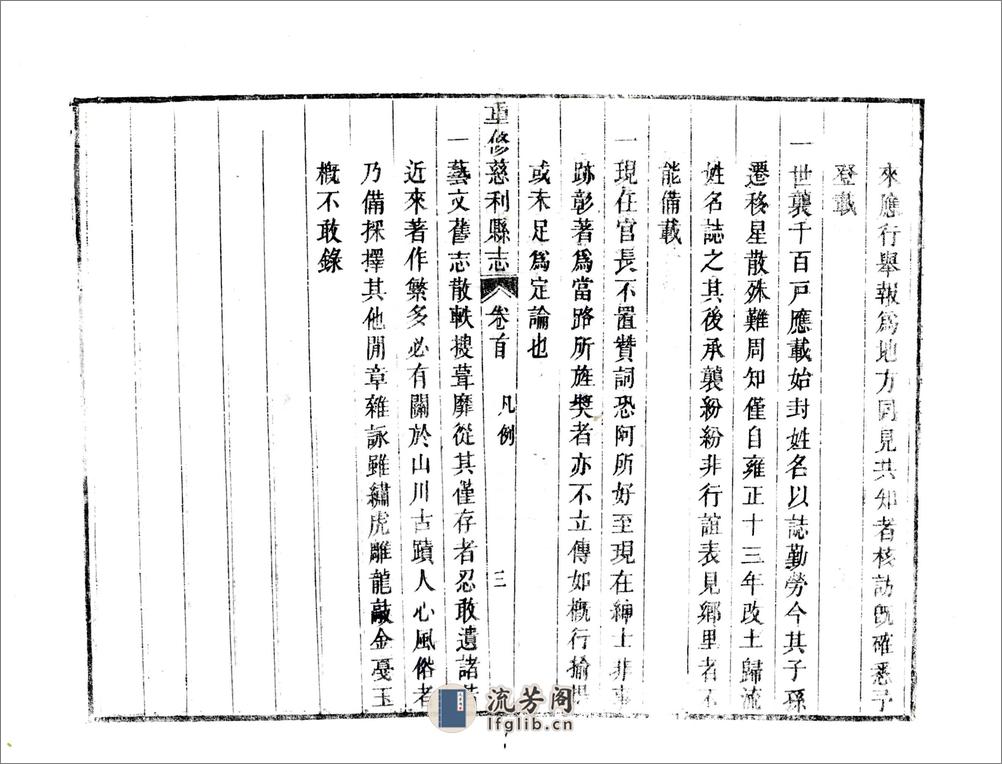 來應行舉報爲地方同見共知者核訪旣確悉予
登載
一世襲千百戸應載始封姓名以誌勤勞今其子孫
遷移星散殊難周知僅自雍正十三年改土歸流
姓名誌之其後承襲紛紛非行誼表見鄉里者不
能備載
一現在官長不置贊詞恐阿所好至現在紳士非事
跡彰著爲當路所旌獎者亦不立傳如槪行揄揚
或未足爲定論也
重修慈利縣志 卷首 凡例 三
一藝文舊志散軼搜葺靡從其僅存者忍敢遺諸
近來著作繁多必有關於山川古蹟人心風俗者
乃備採擇其他閒章雜詠雖繡虎雕龍敲金戞玉
槪不敢錄
流芳阁
lfglib.cn